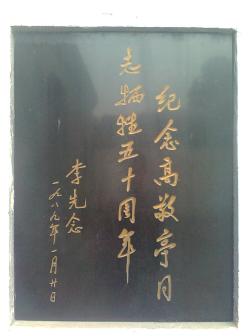 纪念高敬亭同
志牺牲五十周年
李先念
一九八九年一月廿日